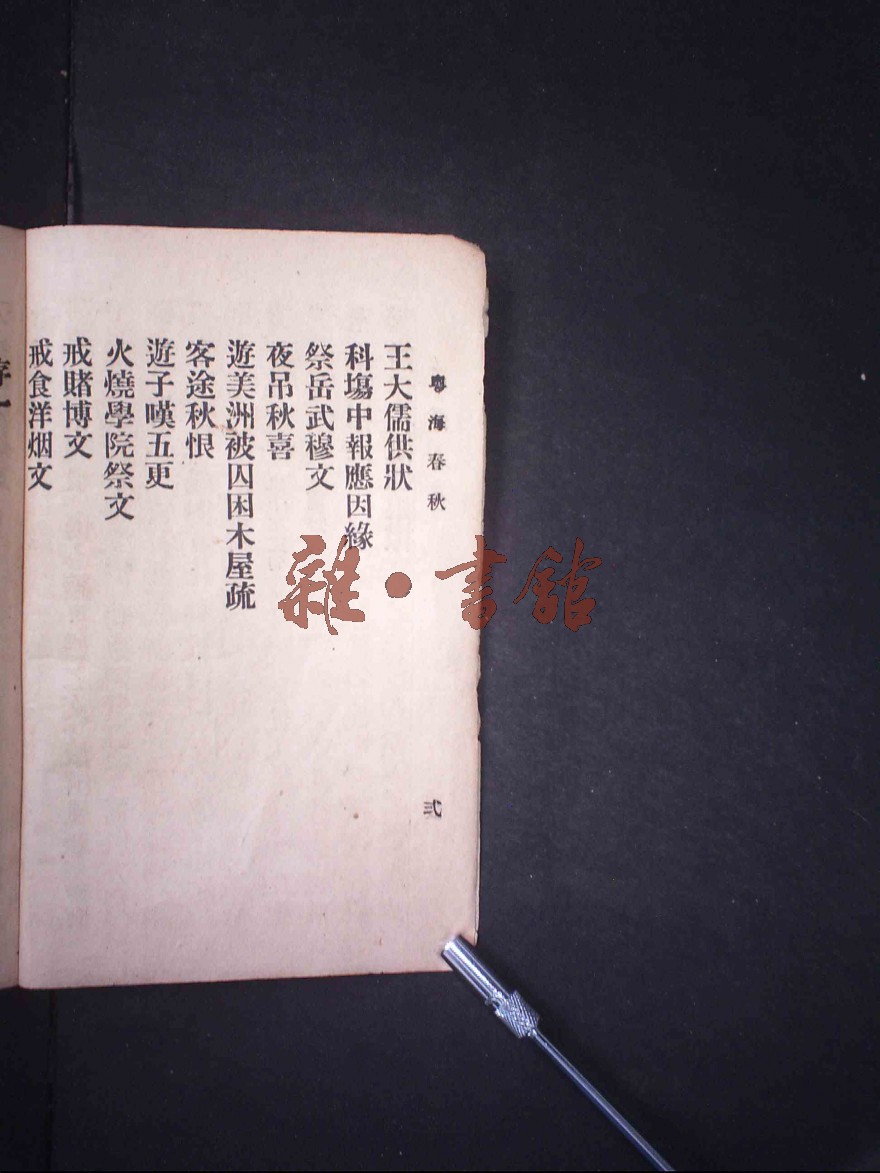 粵海春秋
王大儒供狀
科塲中報應因緣
祭岳武穆文
夜吊秋喜
遊美洲被囚困木屋疏
客途秋恨
遊子嘆五更
火燒學院祭文
戒賭博文
戒食洋烟文
弍
雜·書館